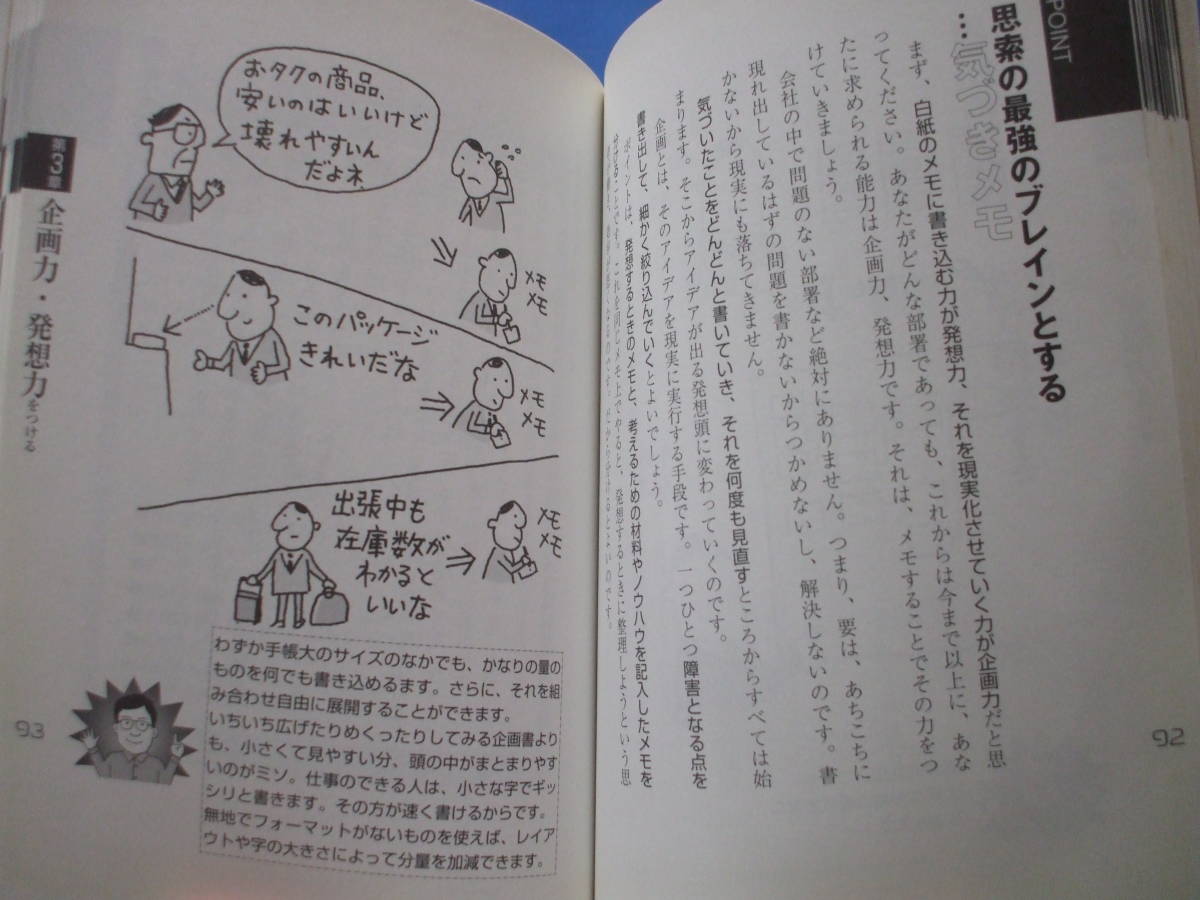 POINT
思索の最強のブレインとする
…気づきメモ
まず、白紙のメモに書き込む力が発想力、それを現実化させていく力が企画力だと思
ってください。あなたがどんな部署であっても、これからは今まで以上に、あな
たに求められる能力は企画力、発想力です。それは、メモすることでその力をつ
けていきましょう。
会社の中で問題のない部署など絶対にありません。つまり、要は、あちこちに
現れ出しているはずの問題を書かないからつかめないし、解決しないのです。書
かないから現実にも落ちてきません。
気づいたことをどんどんと書いていき、それを何度も見直すところからすべては始
まります。そこからアイデアが出る発想頭に変わっていくのです。
企画とは、そのアイデアを現実に実行する手段です。一つひとつ障害となる点を
書き出して、細かく絞り込んでいくとよいでしょう。
ポイントは、発想するときのメモと、考えるための材料やノウハウを記入したメモを
これを同じメモ上でやると、発想するときに整理しようという思
92
おタクの商品、
安いのはいいけど
壊れやすいん
だよネ
メモ
メモ
このパッケージ
きれいだな
メモ
メモ
出張中も
在庫数が
わかると
いいな
メモ
メモ
わずか手帳大のサイズのなかでも、かなりの量の
ものを何でも書き込めるます。さらに、それを組
み合わせ自由に展開することができます。
いちいち広げたりめくったりしてみる企画書より
も、小さくて見やすい分、頭の中がまとまりやす
いのがミソ。仕事のできる人は、小さな字でギッ
シリと書きます。その方が速く書けるからです。
無地でフォーマットがないものを使えば、レイア
ウトや字の大きさによって分量を加減できます。
第3章 企画力・発想力をつける
93